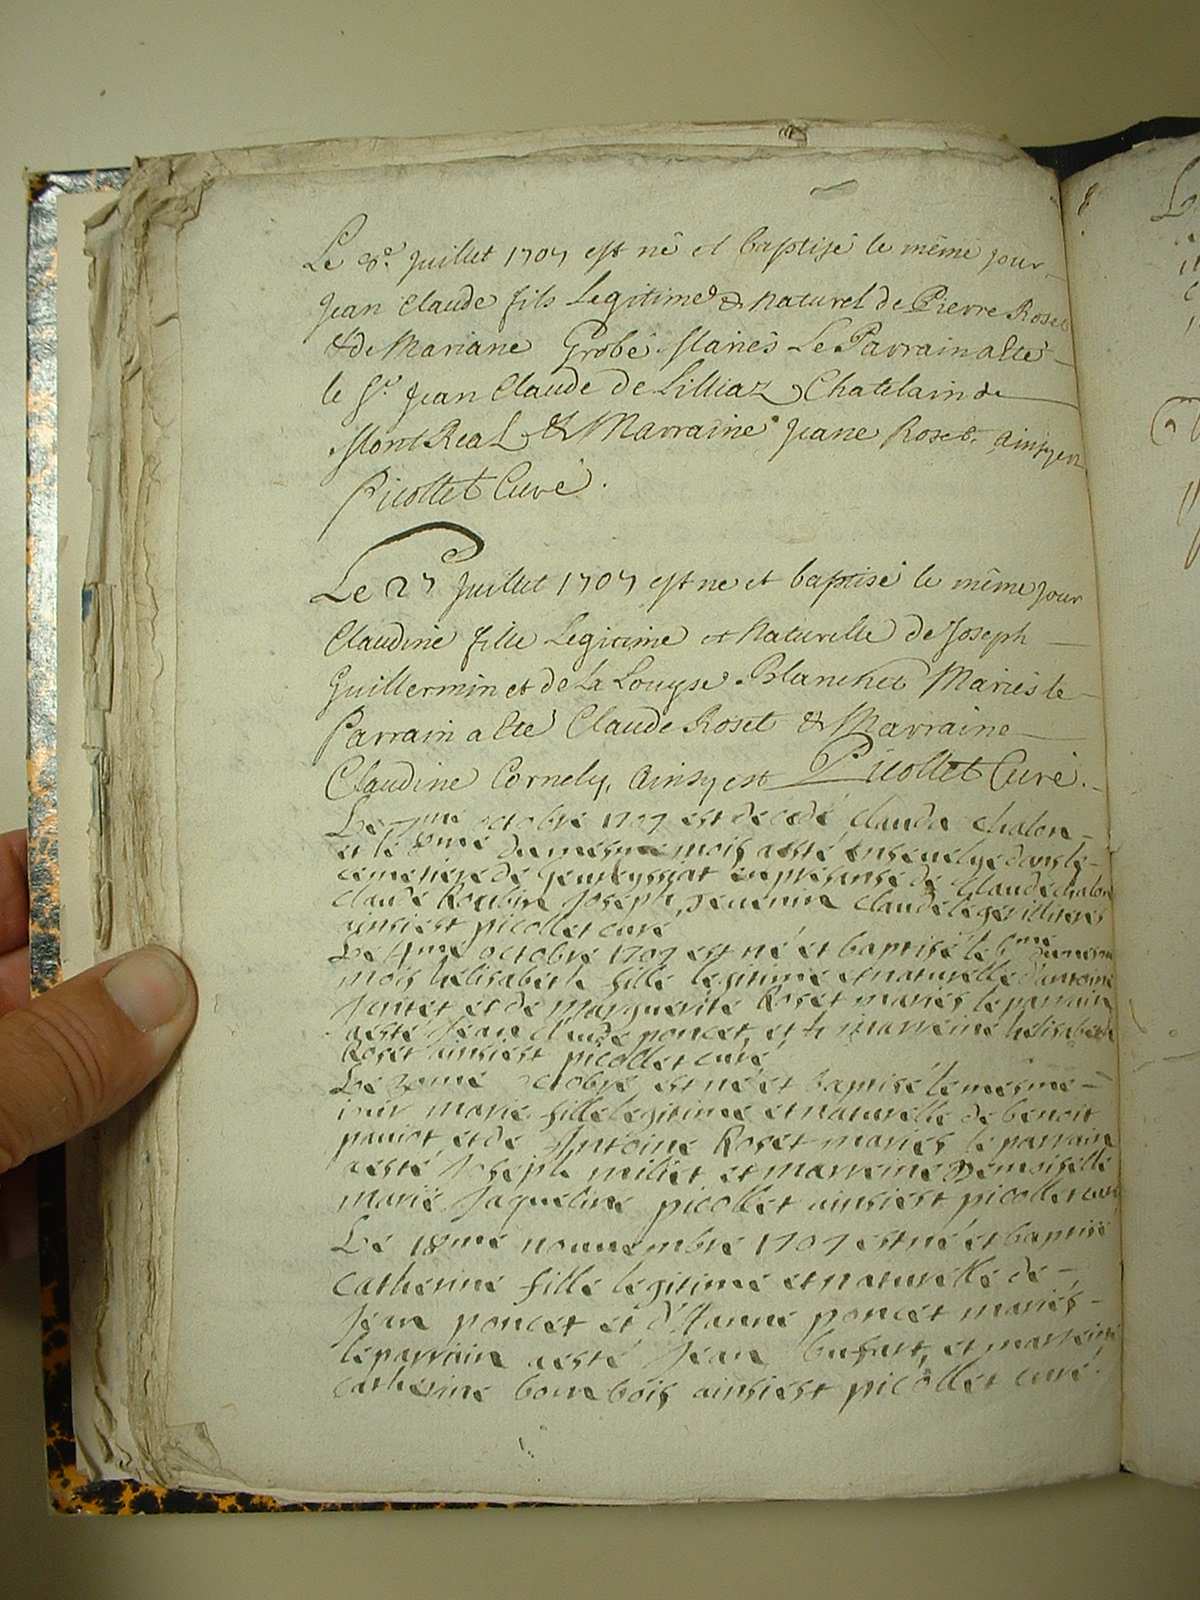 Le 8e. Juillet 1707 est né et baptisé le même jour
Jean Claude fils Legitime & Naturel de Pierre Roset
& de Mariane Grobé Mariés Le Parrain a Eté
le Sr. Jean Claude de Lilliaz Chatelain de
Mont Real & Marraine Jeane Roset. ainsy est
Picollet Curé.
Le 27 Juillet 1707 est ne et baptisé le même jour
Claudine fille Legitime et Naturelle de Joseph
Guillermin et de La Louyse Blanchet Mariés le
Parrain a Eté Claude Roset & Marraine
Claudine Cornely, ainsy est Picollet Curé.
Le 7me octobre 1707 est decedé clauda chalon
et le 8me du mesme mois a esté ensevelye dans le
cemetiere de en présansé de Claude chalon
claudé Roubin Joseph claudé leger
ainsiest picollet curé
Lé 4me octobre 1707 est né et baptisé le 6me du mesme
mois helisabeth fillé legitimé et naturellé d'antoine
et dé Marguerité Roset mariés le parrain
aesté Jean claudé poncet, et la marreiné helisabeth
Roset ainsiest picollet curé
Lé octobré est né et baptisé le mesme
jour marié fillé legitimé et naturellé dé benoit
paviot et dé Antoine Roset mariés lé parrain
aesté Joséph miliet et marreiné Demoisellé
marié Jaquéliné picollét ainsiest picollet curé
Lé 18mé nouuembré 1707 est né et baptisé
catheriné fillé legitimé et naturéllé dé
Jéan poncet et d'Anné poncét mariés
lé parrain aesté Jéan bufart, et marreiné
catheriné bourbois ainsiést picollét curé.